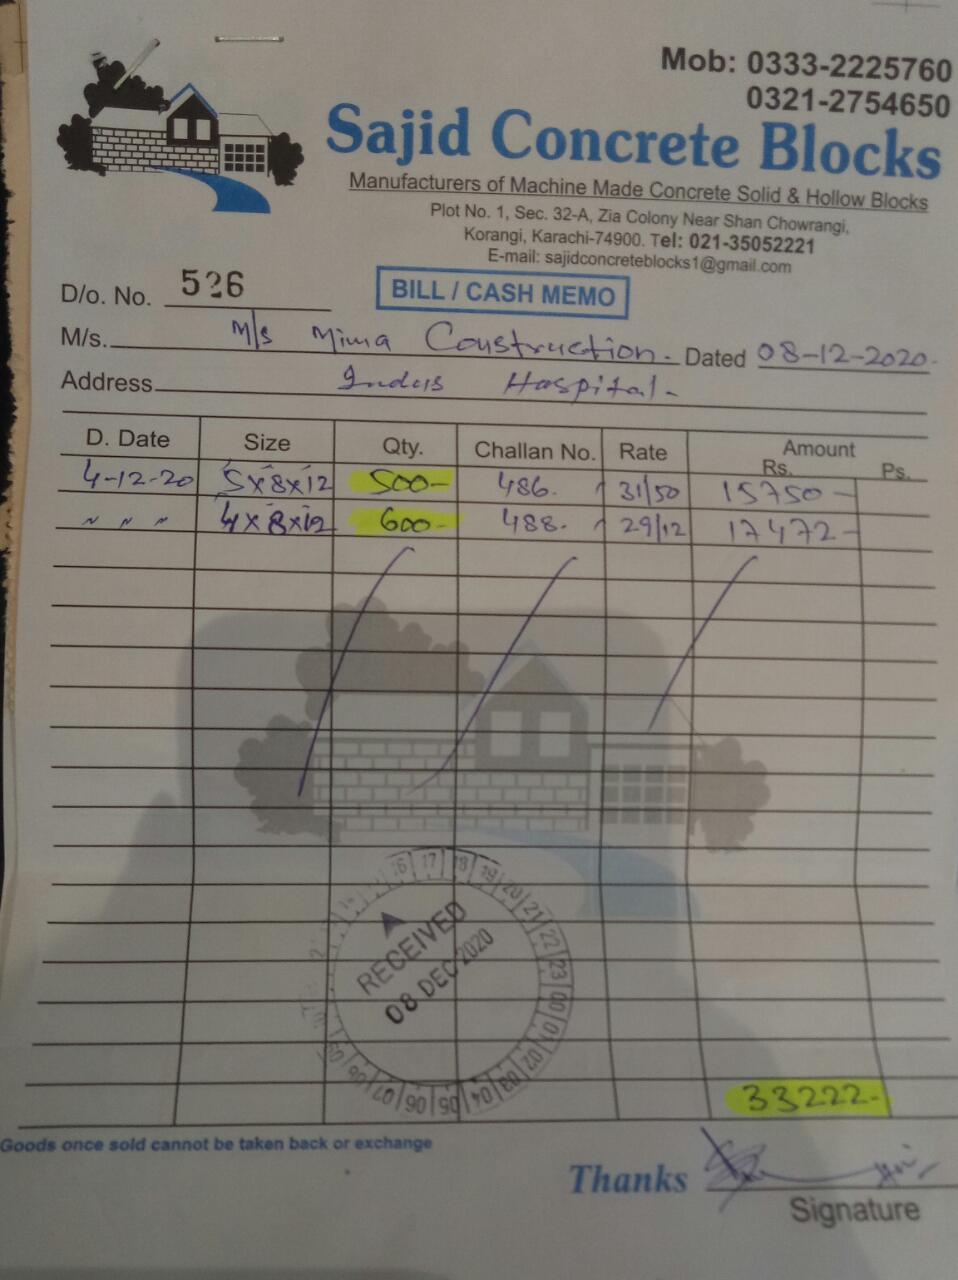 Mob: 0333-2225760
0321-2754650
Sajid Concrete Blocks
Manufacturers of Machine Made Concrete Solid & Hollow Blocks
Plot No. 1, Sec. 32-A, Zia Colony Near Shan Chowrangi,
Korangi, Karachi-74900. Tel: 021-35052221
E-mail: sajidconcreteblocks1@gmail.com
D/o. No. 526
BILL / CASH MEMO
M/s. M/s Mima Construction. Dated 08-12-2020.
Address Indus Hospital.
D. Date Size Qty. Challan No. Rate Amount
Rs. Ps.
4-12-20 5x8x12 500- 486. 31/50 15750-
" " " 4x8x12 600- 488. 29/12 17472-
16 17 18 19 20 21 22 23 00 01 02 03 04 05 06 07 08 09
RECEIVED
08 DEC 2020
33222-
Goods once sold cannot be taken back or exchange
Thanks
Signature